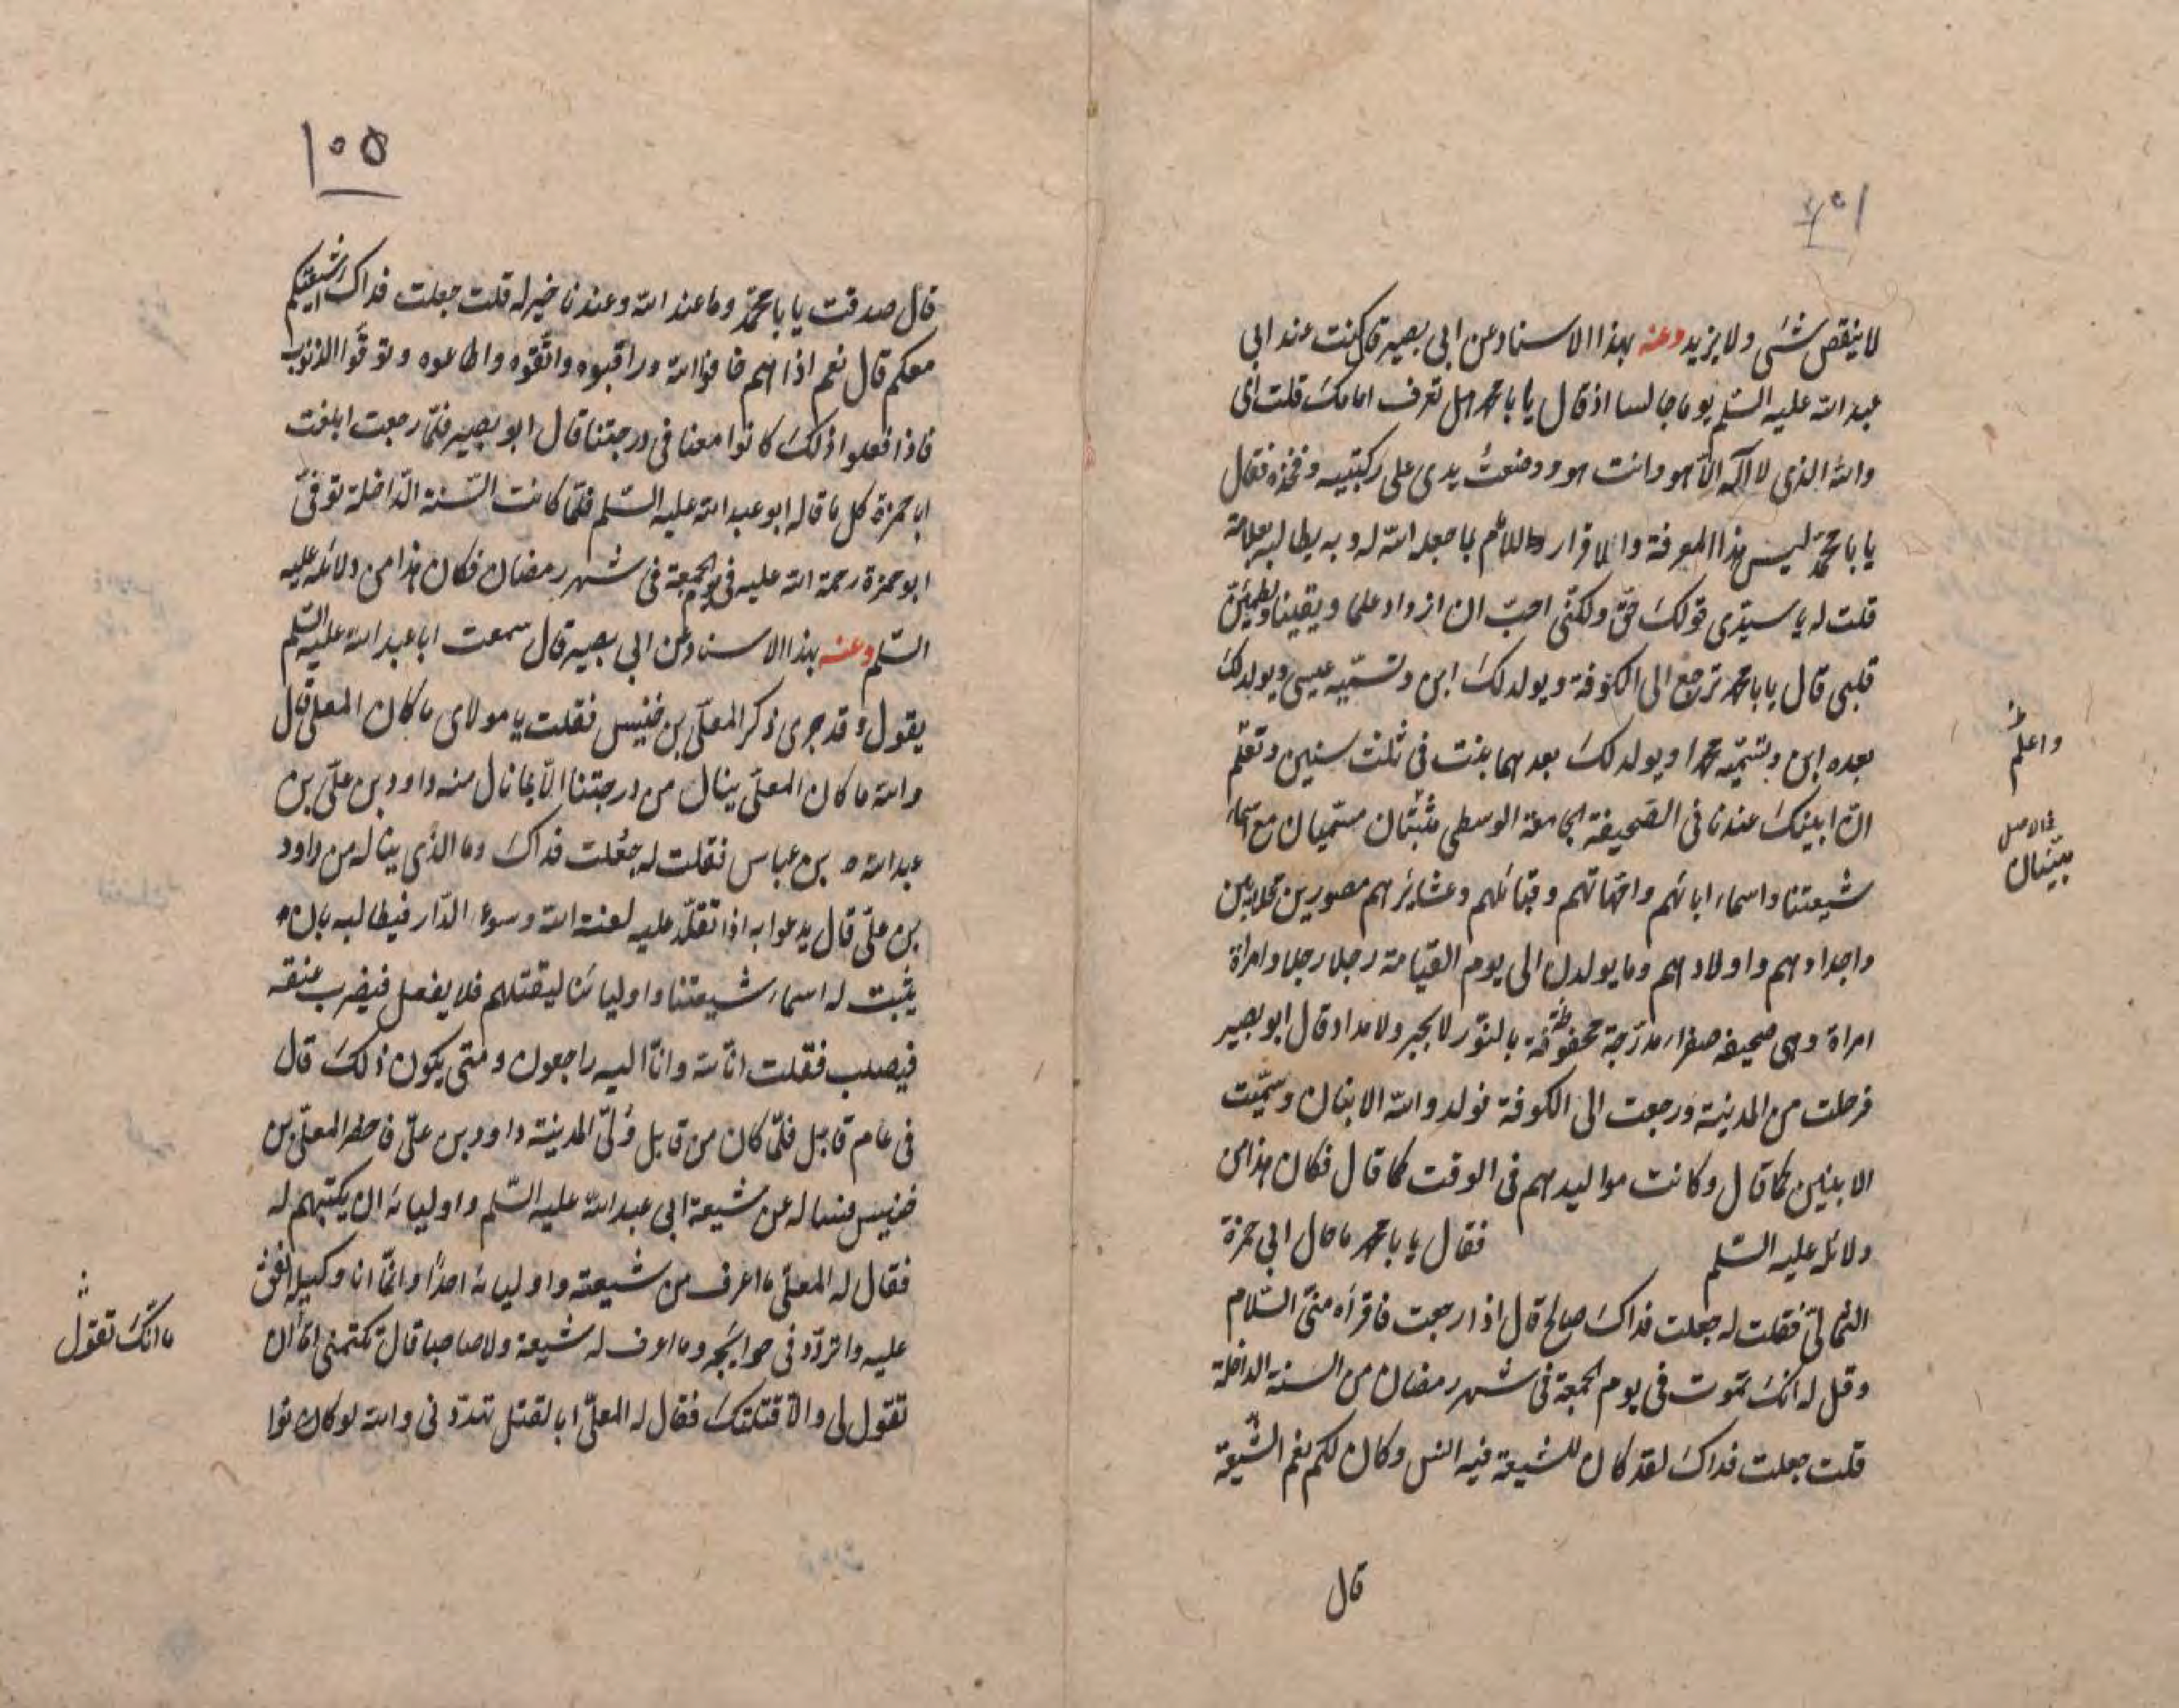 لا ينقص شئ ولا يزيد وعنه بهذا الاسناد عن ابى بصير قال كنت عند ابى
عبد الله عليه السّلم يوما جالسا اذ قال يا با محمد هل تعرف امامك قلت اى
والله الذى لا اله الّا هو وانت هو ووضعت يدى على ركبتيه وفخذه فقال
يا با محمّد ليس هذا المعرفة والاقرار للامام بما جعله الله له وبه يطالبه بعلامة
قلت له يا سيّدى قولك حقّ ولكنّى احبّ ان ازداد علما ويقينا ويطمئن
قلبى قال يا با محمد ترجع الى الكوفة ويولد لك ابن وتسمّيه عيسى ويولد لك
بعده ابن وتسمّيه محمدا ويولد لك بعدهما بنت فى ثلث سنين وتعلم
انّ ابنيك عندنا فى الصّحيفة الجامعة الوسطى مثبتان مسمّيان مع اسماء
شيعتنا واسماء ابائهم وامّهاتهم وقبائلهم وعشايرهم مصورين محلايين
واجدادهم واولادهم وما يولدن الى يوم القيامة رجلا رجلا وامراة
امراة وهى صحيفه صفراء مدرّجة محفوفة بالنّور لا بحبر ولا مداد قال ابو بصير
فرحلت من المدينة ورجعت الى الكوفة فولد والله الابنان وسمّيت
الابنين كما قال وكانت مواليدهم فى الوقت كما قال فكان هذا من
دلائله عليه السّلم فقال يا با محمد ما حال ابى حمزة
الثمالىّ فقلت له جعلت فداك صالح قال اذا رجعت فاقراه منّى السّلام
وقل له انك تموت فى يوم الجمعة فى شهر رمضان من السنة الداخلة
قلت جعلت فداك لقد كان للشيعة فيه انس وكان لكم نعم الشّيعة
قال
واعلم
فى الاصل
ميّتان
١٠٥
قال صدقت يا با محمّد وما عند الله وعندنا خير له قلت جعلت فداك اشيعتكم
معكم قال نعم اذا هم خافوا الله وراقبوه واتّقوه واطاعوه وتوقّوا الذنوب
فاذا فعلوا ذلك كانوا معنا فى درجتنا قال ابو بصير فلمّا رجعت ابلغت
ابا حمزة كل ما قاله ابو عبد الله عليه السّلم فلمّا كانت السّنة الدّاخلة توفّى
ابو حمزة رحمة الله عليه فى يوم الجمعة فى شهر رمضان فكان هذا من دلائله عليه
السّلم وعنه بهذا الاسناد عن ابى بصير قال سمعت ابا عبد الله عليه السّلم
يقول وقد جرى ذكر المعلّى بن خنيس فقلت يا مولاى ما كان المعلى قال
والله ما كان المعلّى ينال من درجتنا الّا بما نال منه داود بن علىّ بن
عبد الله بن عباس فقلت له جعلت فداك وما الذى يناله من داود
بن علىّ قال يدعوا به اذا تقلّد عليه لعنة الله وسوء الدّار فيطالبه بان
يثبت له اسماء شيعتنا واوليائنا ليقتلهم فلا يفعل فيضرب عنقه
فيصلب فقلت انّا لله وانّا اليه راجعون ومتى يكون ذلك قال
فى عام قابل فلمّا كان من قابل ولّى المدينة داود بن علىّ فاحضر المعلّى بن
خنيس فساله عن شيعة ابى عبد الله عليه السّلم واوليائه ان يكتبهم له
فقال له المعلّى ما اعرف من شيعته واوليائه احدا وانّما انا وكيله انفق
عليه واتردّد فى حوائجه وما اعرف له شيعة ولا صاحبا قال تكتمنى امّا ان
تقول لى والّا قتلتك فقال له المعلّى ابا لقتل تهدّدنى والله لو كانوا
ما انّك تقول